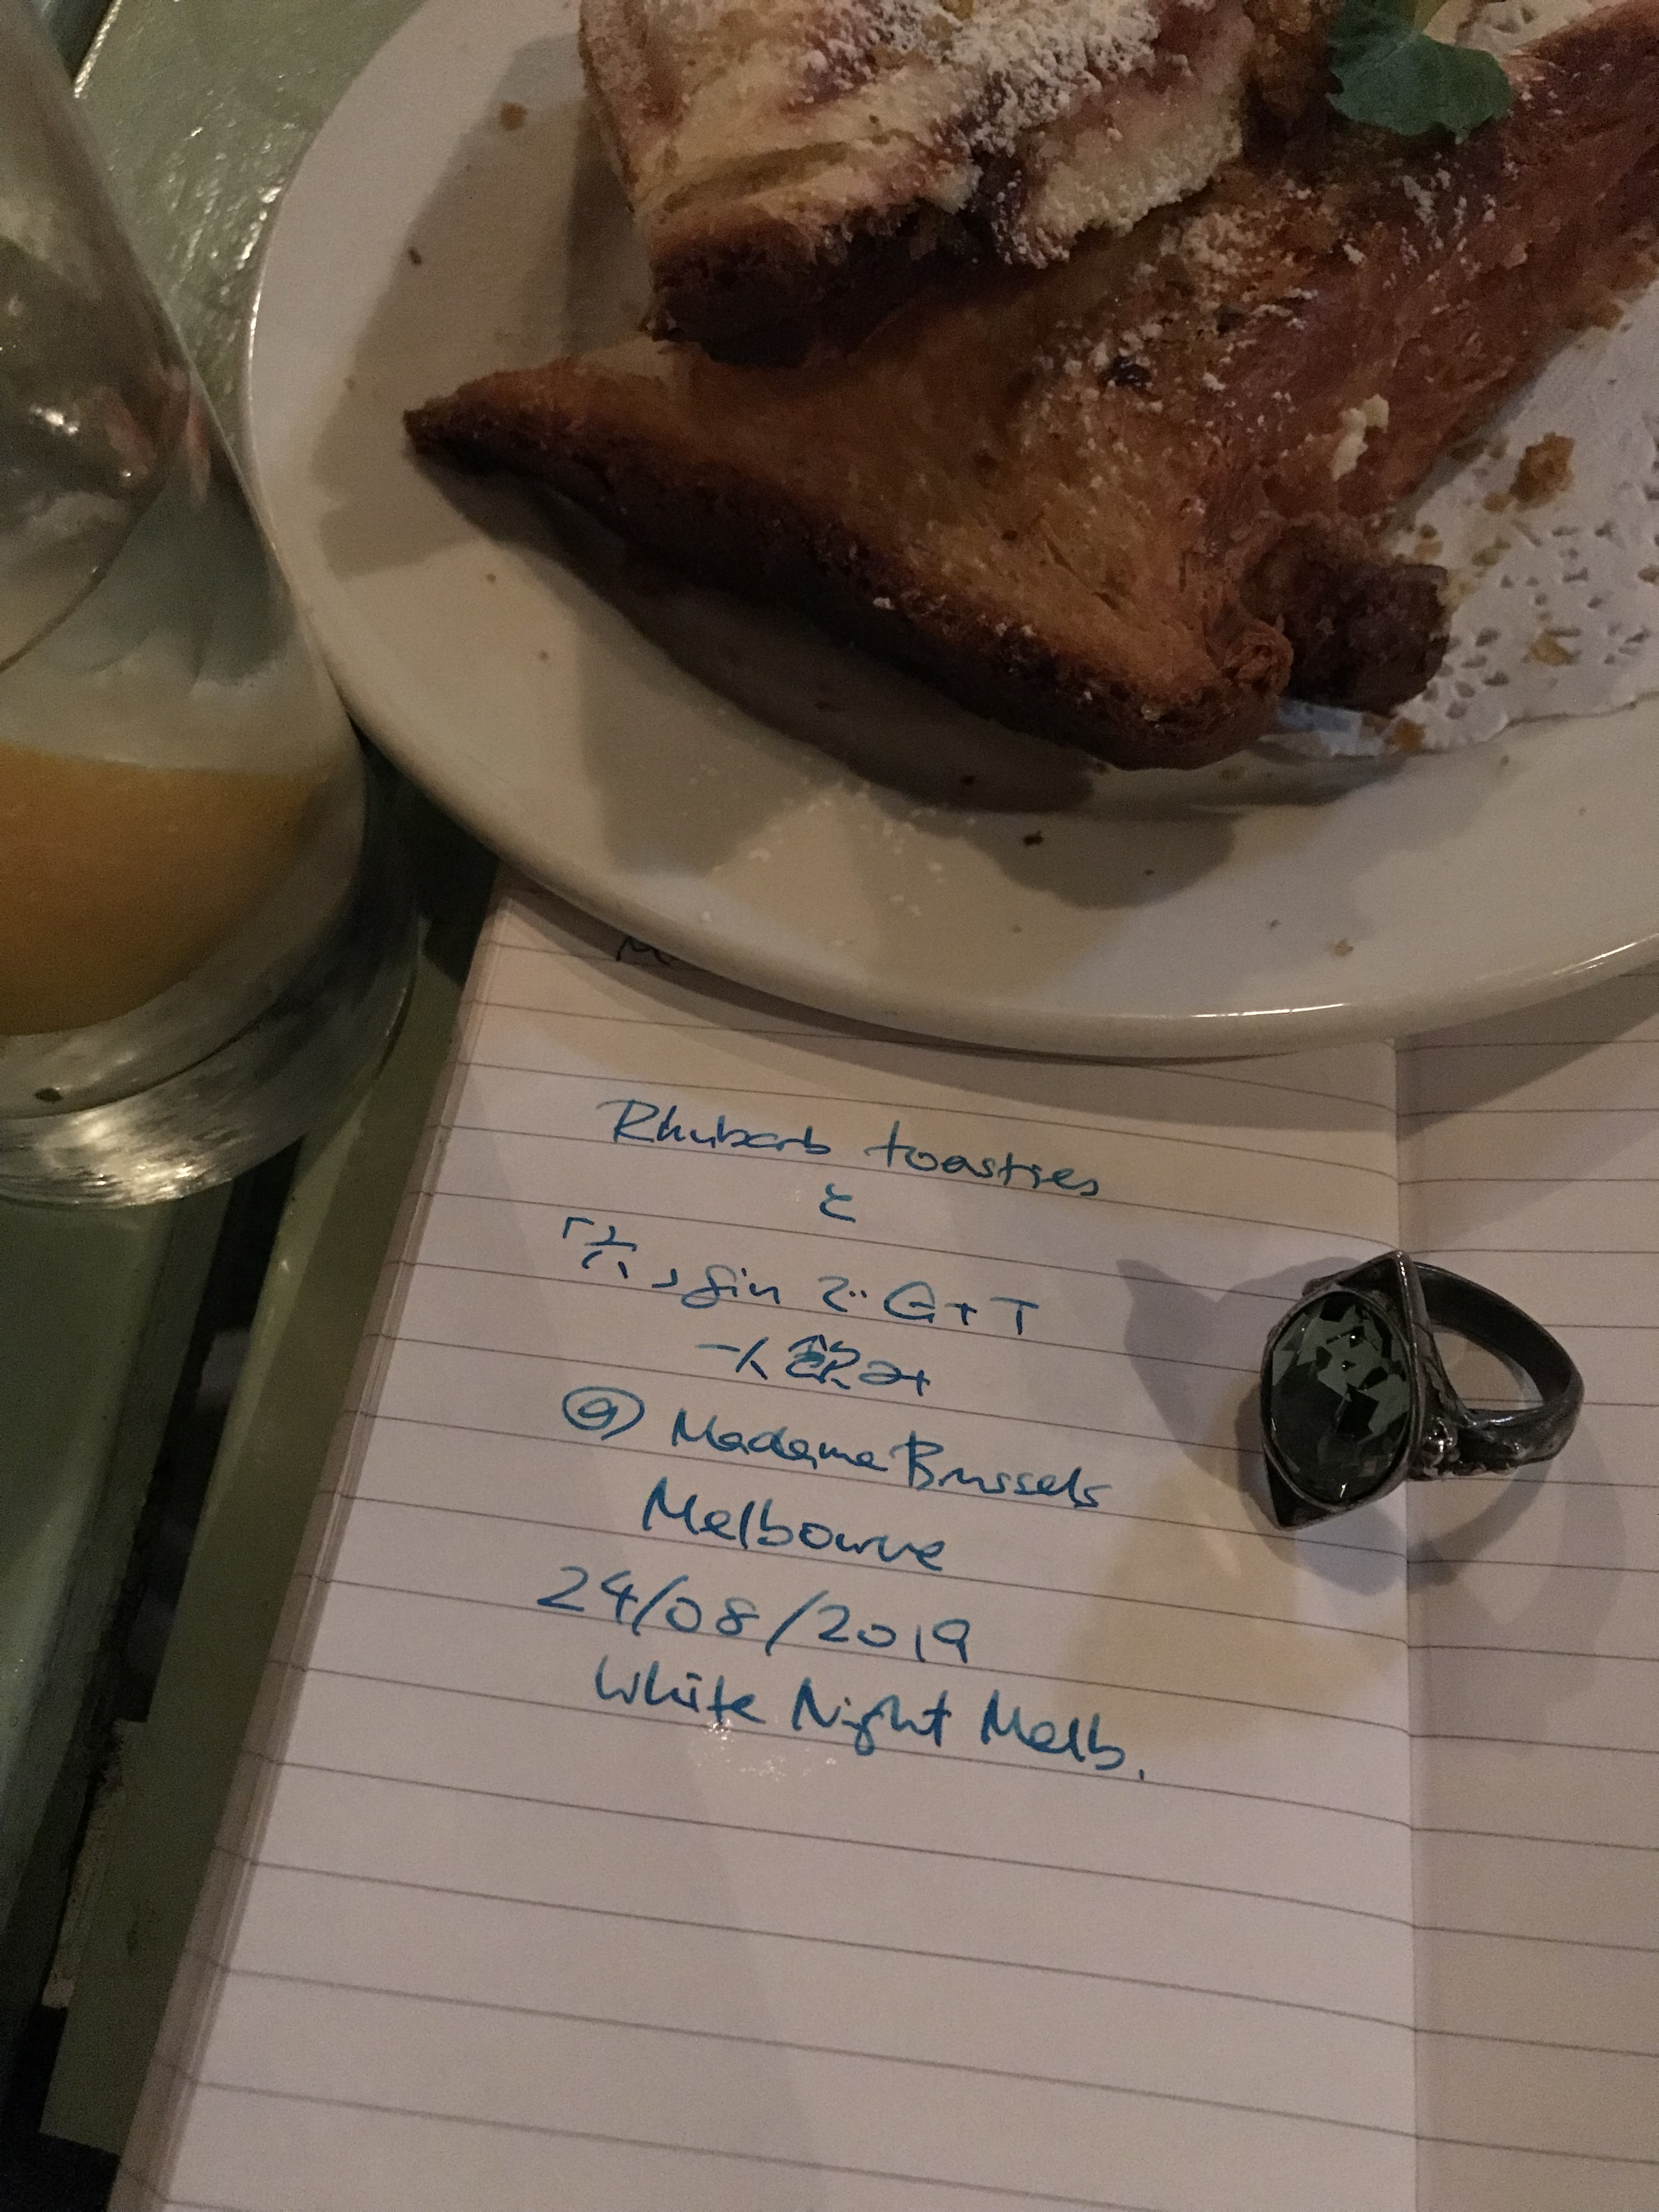 Rhubarb toasties
と
「六」gin で G+T
一人飲み
@ Madame Brussels
Melbourne
24/08/2019
White Night Melb.